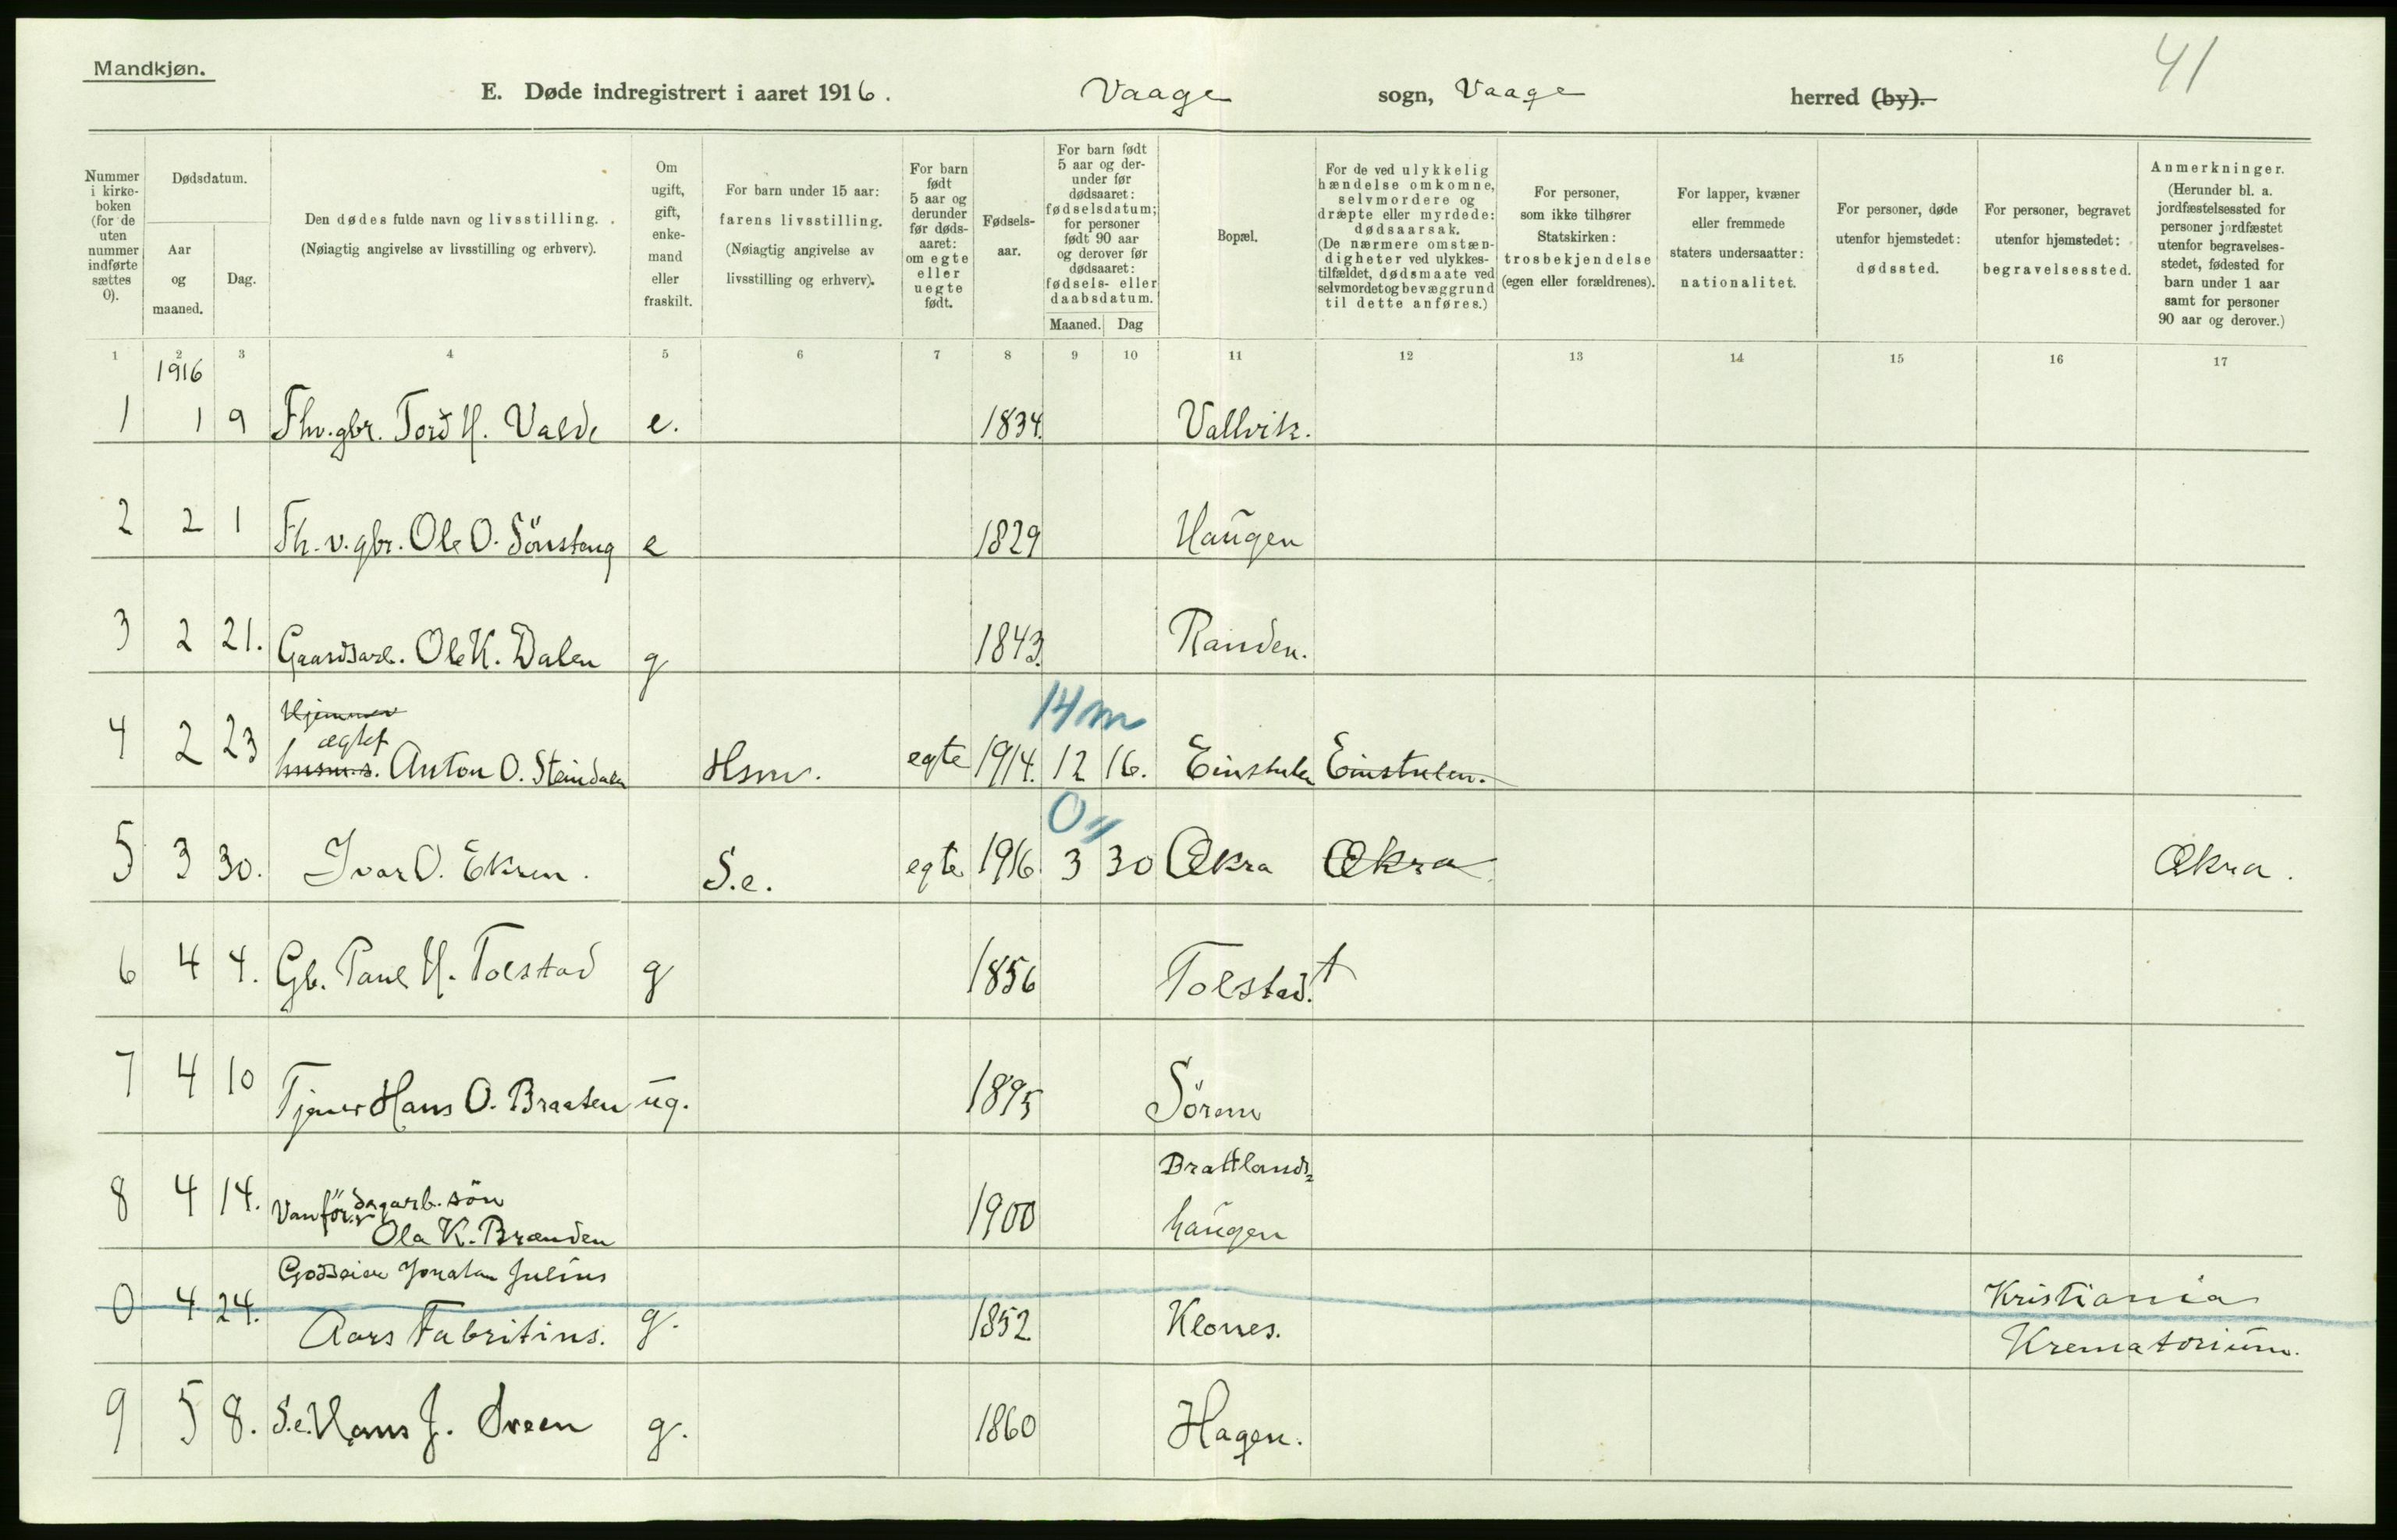 Mandkjøn.
41
E. Døde indregistrert i aaret 1916. Vaage sogn, Vaage herred (by).
Nummer i kirkeboken (for de uten nummer indførte sættes 0).
Dødsdatum.
Aar og maaned.
Dag.
Den dødes fulde navn og livsstilling.
(Nøiagtig angivelse av livsstilling og erhverv).
Om ugift, gift, enkemand eller fraskilt.
For barn under 15 aar: farens livsstilling.
(Nøiagtig angivelse av livsstilling og erhverv).
For barn født 5 aar og derunder før dødsaaret: om egte eller uegte født.
Fødselsaar.
For barn født 5 aar og derunder før dødsaaret: fødselsdatum; for personer født 90 aar og derover før dødsaaret: fødsels- eller daabsdatum.
Maaned. Dag
Bopæl.
For de ved ulykkelig hændelse omkomne, selvmordere og dræpte eller myrdede: dødsaarsak.
(De nærmere omstændigheter ved ulykkestilfældet, dødsmaate ved selvmordet og bevæggrund til dette anføres.)
For personer, som ikke tilhører Statskirken: trosbekjendelse (egen eller forældrenes).
For lapper, kvæner eller fremmede staters undersaatter: nationalitet.
For personer, døde utenfor hjemstedet: dødssted.
For personer, begravet utenfor hjemstedet: begravelsessted.
Anmerkninger.
(Herunder bl. a. jordfæstelsessted for personer jordfæstet utenfor begravelsesstedet, fødested for barn under 1 aar samt for personer 90 aar og derover.)
1 2 3 4 5 6 7 8 9 10 11 12 13 14 15 16 17
1916
1 1 9 Fhv. gbr. Tord H. Valde e. 1834. Vallvik.
2 2 1 Fh. v. gbr. Ole O. Sönsteng e 1829 Haugen
3 2 21. Gaardarb. Ole K. Dalen g 1843. Randen.
14 m
4 2 23 husm. s. Anton O. Steindalen Hsm. egte 1914. 12 16. Einstulen Einstulen.
0 "
5 3 30. Ivar O. Ekren. S.e. egte 1916 3 30 Ækra Ækra Ækra.
6 4 4. Gb. Paul H. Tolstad g 1856 Tolstad.
7 4 10 Tjener Hans O. Braaten ug. 1895 Sörem
8 4 14. Vanför dagarb. sön 1900 Brattlands-
Ola K. Brænden haugen
Godseier Jonatan Julius
0 4 24. Aars Fabritius. g. 1852 Klones. Kristiania
Krematorium.
9 5 8. S.e. Hans J. Sveen g. 1860 Hagen.